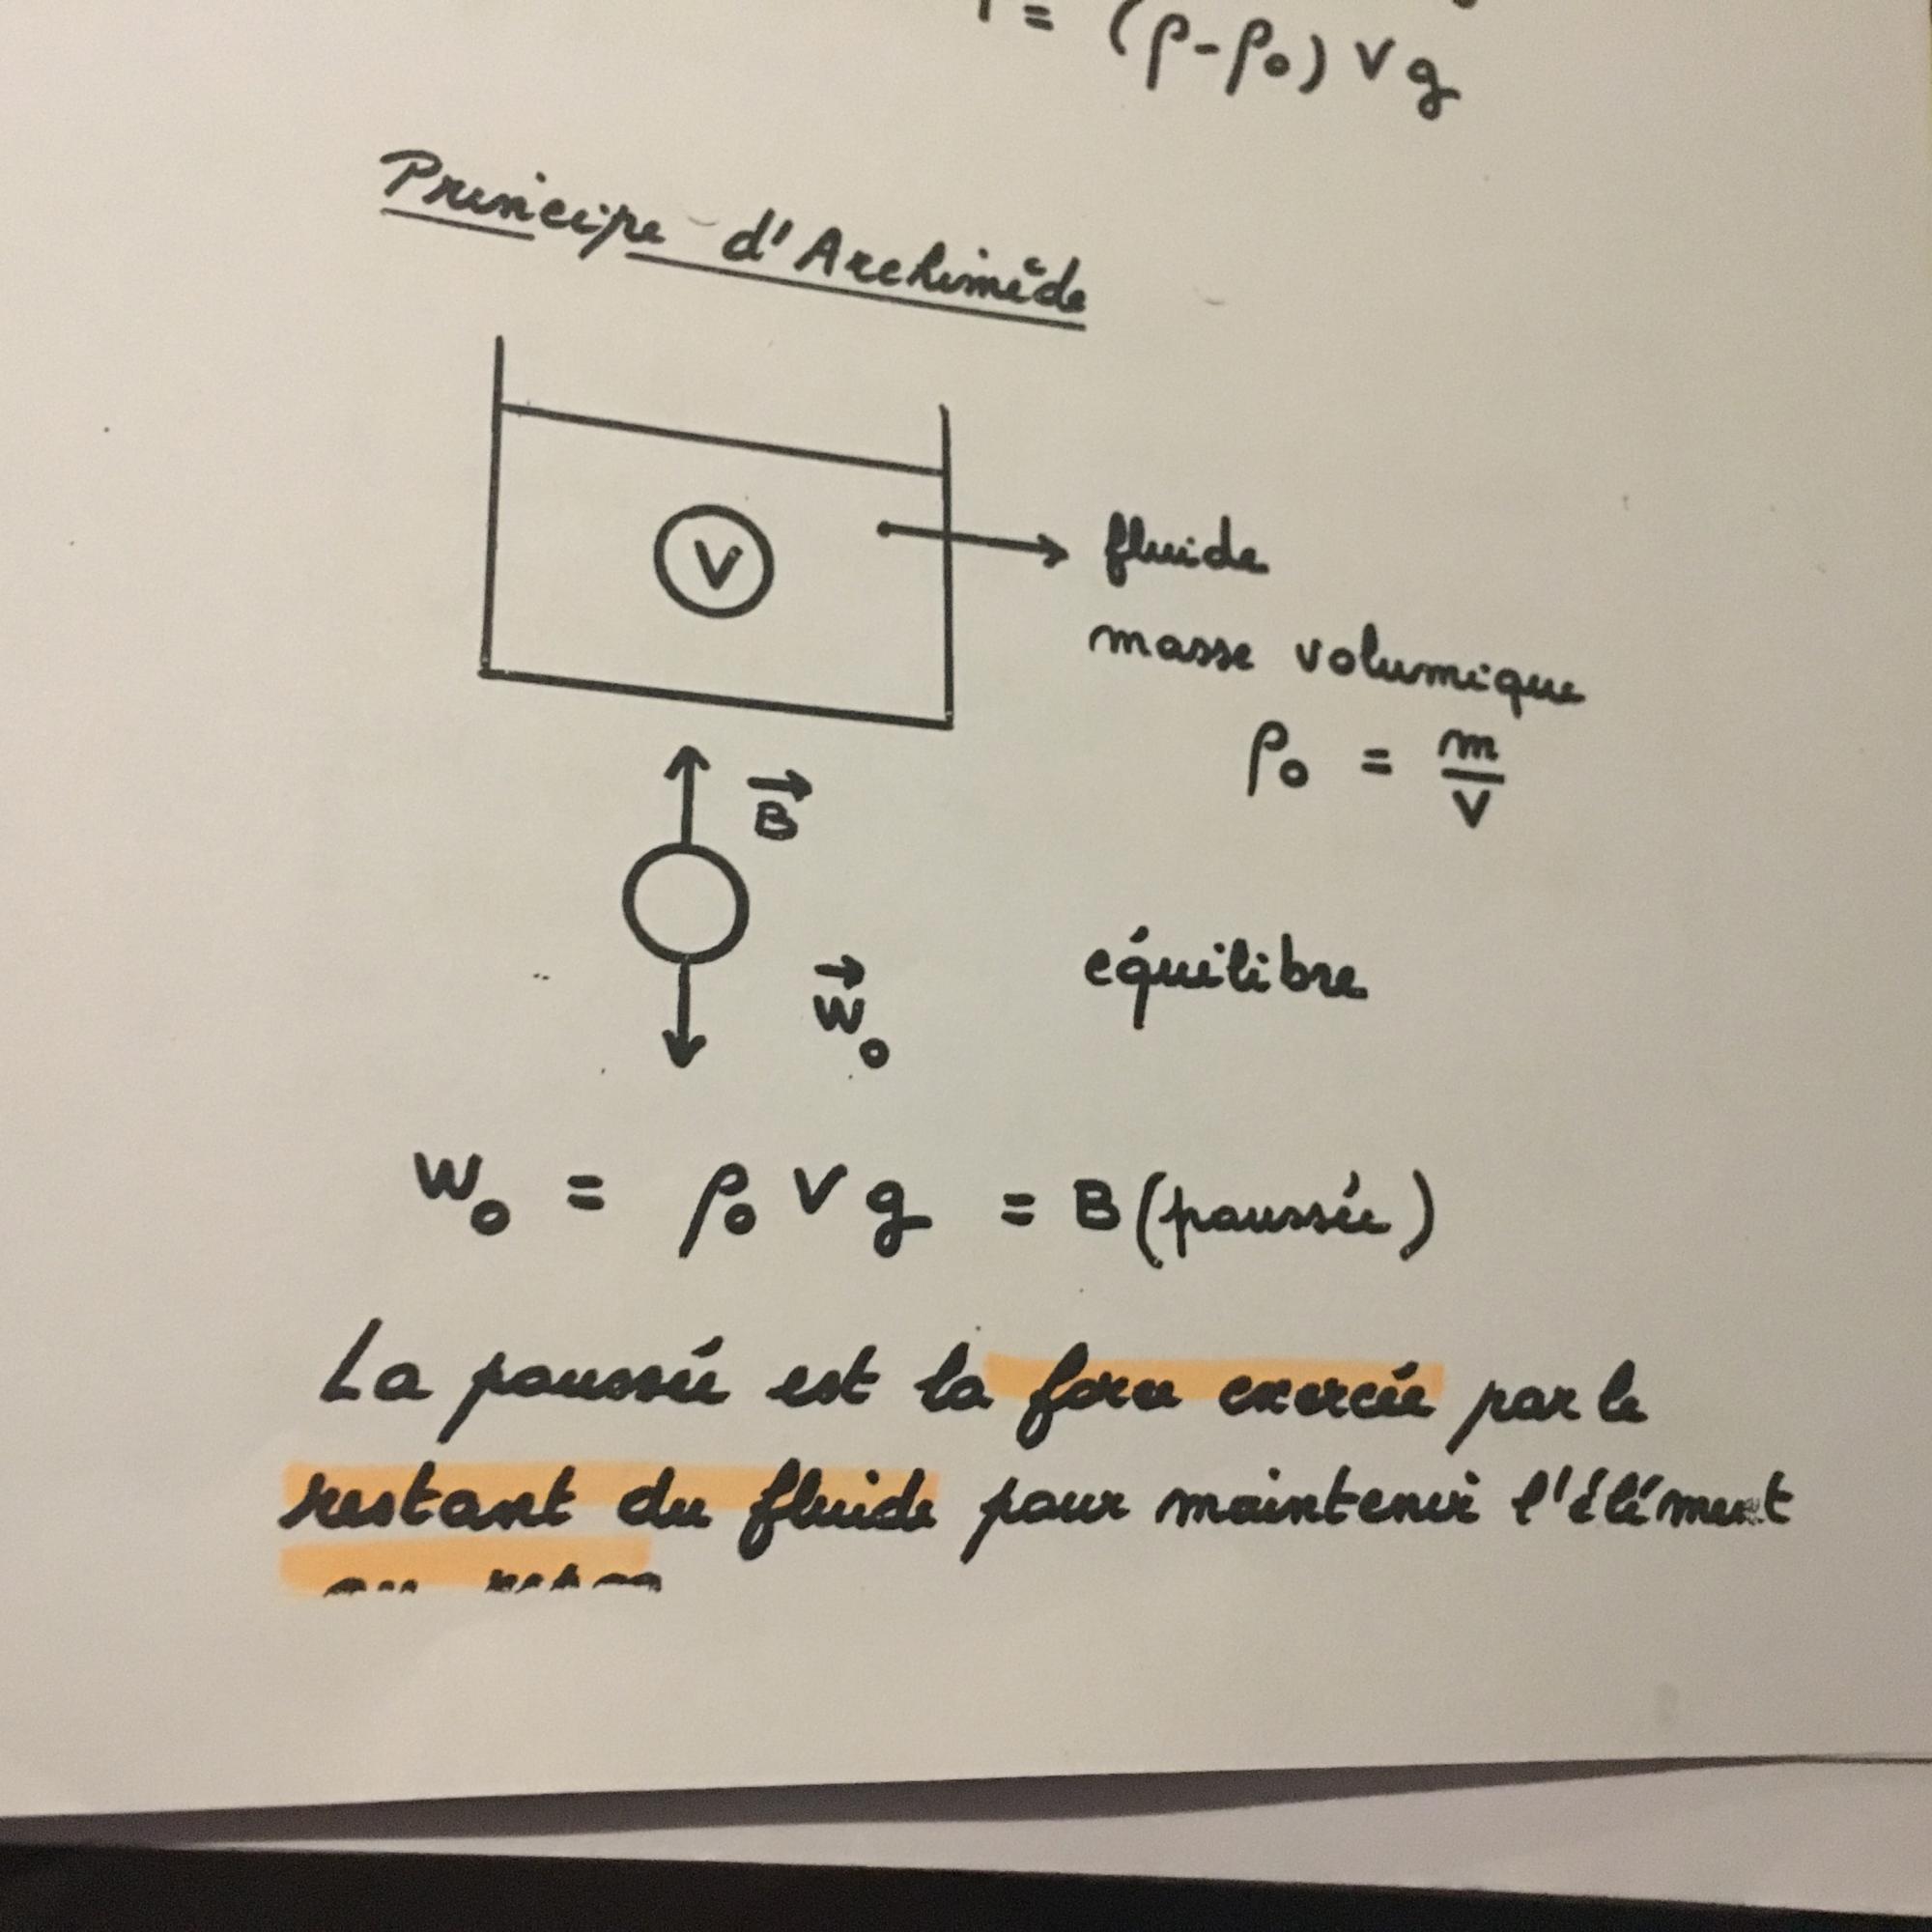 = (ρ-ρ₀) V g
Principe d'Archimède
V
fluide
masse volumique
ρ₀ = m/V
B⃗
W⃗₀
équilibre
W₀ = ρ₀ V g = B (poussée)
La poussée est la force exercée par le
restant du fluide pour maintenir l'élément